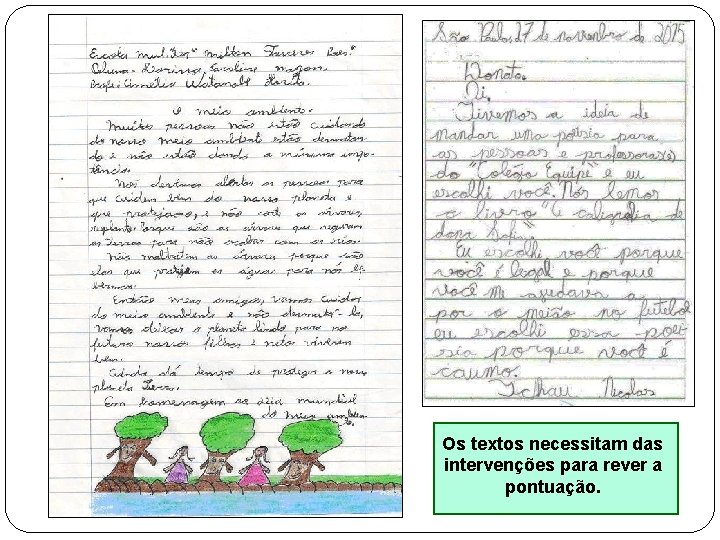 Escola mul. "Milton Tavares Paes."
Aluna - Marina, Caroline
Profe:
O meio ambiente.
Muitas pessoas não estão cuidando
do nosso meio ambiente estão desmatan-
do e não estão dando a mínima impor-
tância.
Nós devemos alertar as pessoas para
que cuidem bem do nosso planeta e
que protejam, e não corte as árvores,
replante. Porque são as árvores que seguram
as terras para não acabar com os rios.
Não maltratem as árvores porque são
elas que protegem as águas para nós be-
bermos.
Então meus amigos, vamos cuidar
do meio ambiente e não desmatá-lo,
vamos deixar o planeta lindo para no
futuro nossos filhos e netos viverem
bem.
Ainda dá tempo de proteger o nosso
planeta Terra.
Em homenagem ao dia mundial
do meio ambien-
te.
São Paulo, 27 de novembro de 2015
Donato.
Oi.
Tivemos a ideia de
mandar uma poesia para
as pessoas e professoras(es)
do "Colégio Equipe" e eu
escolhi você. Nós lemos
o livro "A caligrafia de
dona Sofia".
Eu escolhi você porque
você é legal e porque
você me ajudava a
por o meião no futebol
eu escolhi essa poe-
sia porque você é
caumo.
Tchau Nicolas
Os textos necessitam das
intervenções para rever a
pontuação.